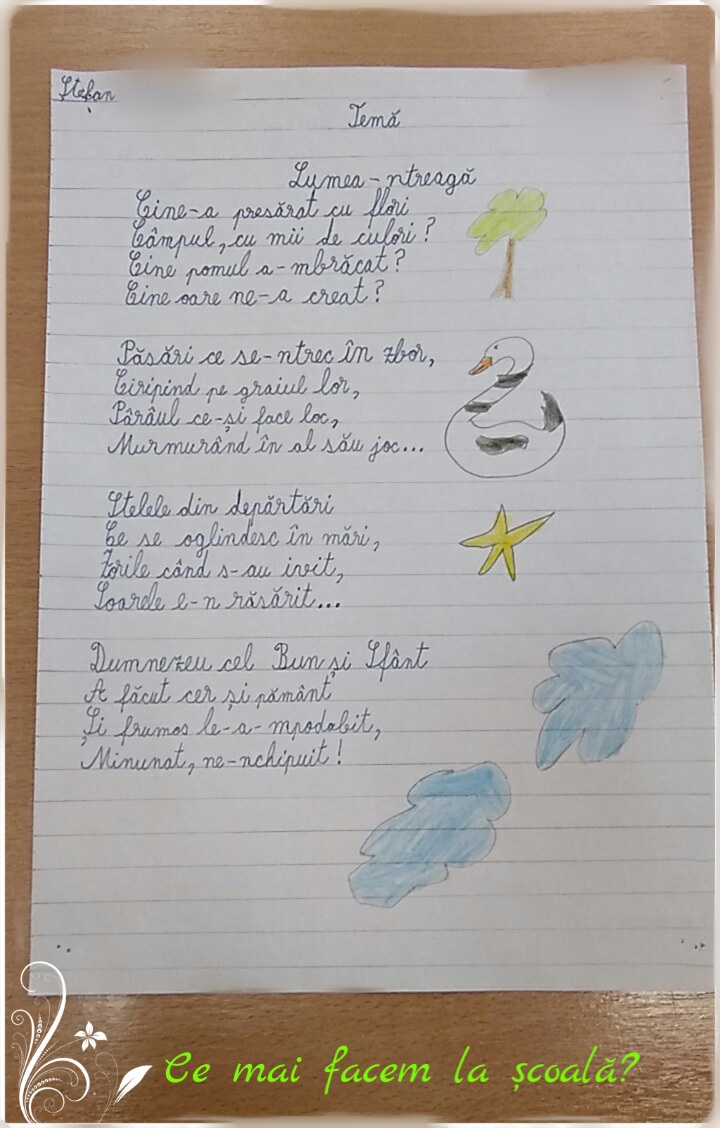 Ștefan
Temă
Lumea-ntreagă
Cine-a presărat cu flori
Câmpul, cu mii de culori?
Cine pomul a-mbrăcat?
Cine oare ne-a creat?
Păsări ce se-ntrec în zbor,
Ciripind pe graiul lor,
Pârâul ce-și face loc,
Murmurând în al său joc...
Stelele din depărtări
Ce se oglindesc în mări,
Zorile când s-au ivit,
Soarele e-n răsărit...
Dumnezeu cel Bun și Sfânt
A făcut cer și pământ
Și frumos le-a-mpodobit,
Minunat, ne-nchipuit!
Ce mai facem la școală?